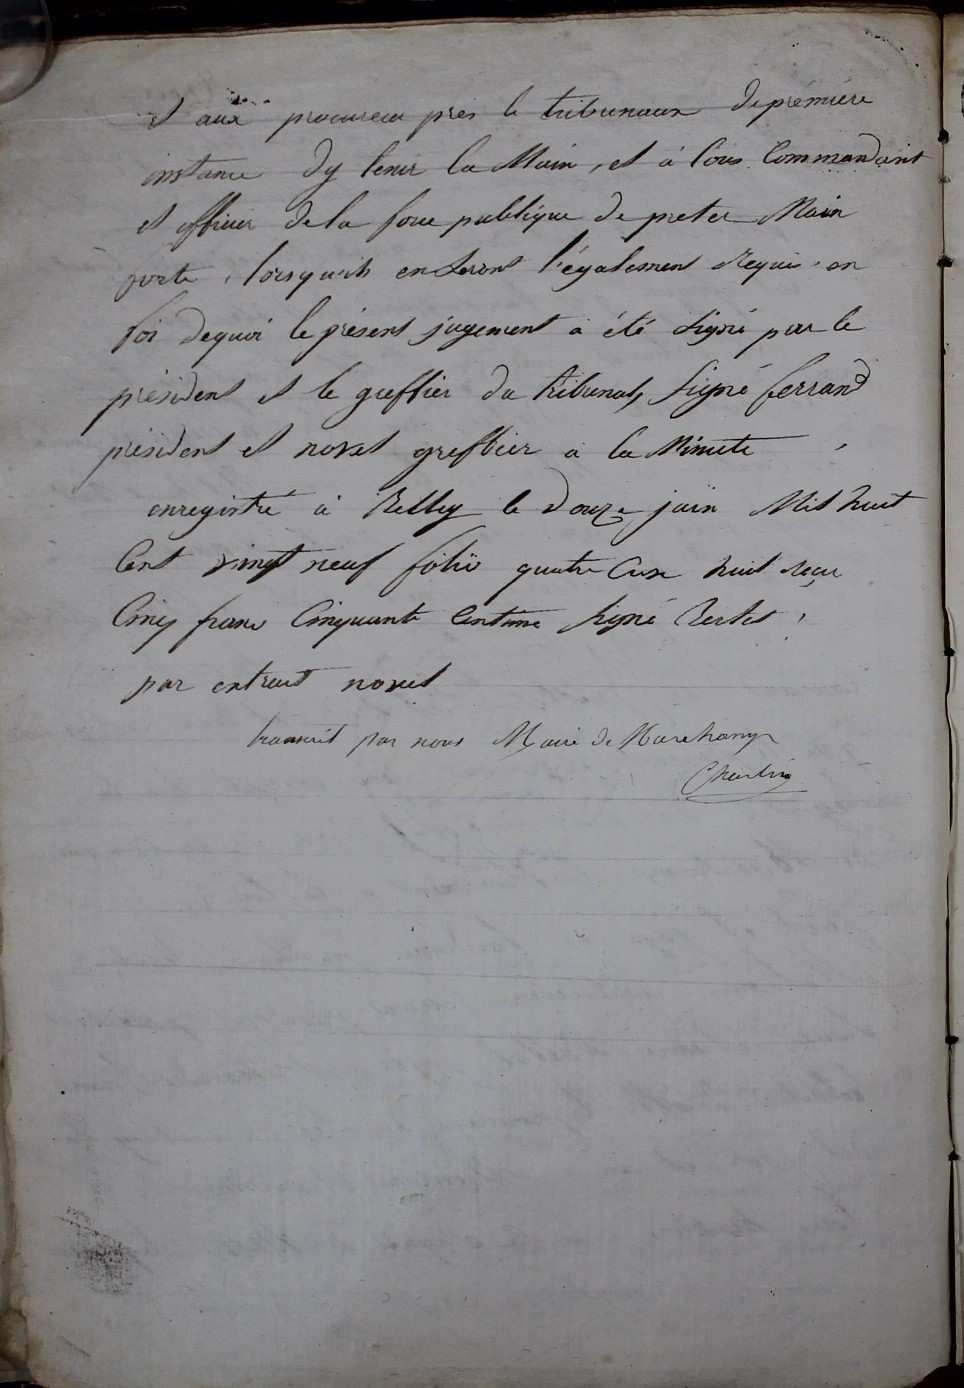 et aux procureur pres le tribunaux de première
instance dy tenir la Main, et à tous Commandant
et officier de la force publique de preter Main
forte, lorsqu'ils en seront légalement requis. en
foi dequoi le présent jugement a été signé par le
président et le greffier du tribunal, signé ferrand
président et novet greffier a la Minute
enregistré à Belley le douze juin Mil huit
Cent vingt neuf folio quatre Case huit reçu
Cinq franc Cinquante Centime signé
par extrait novet
transcrit par nous Maire de Marchamp